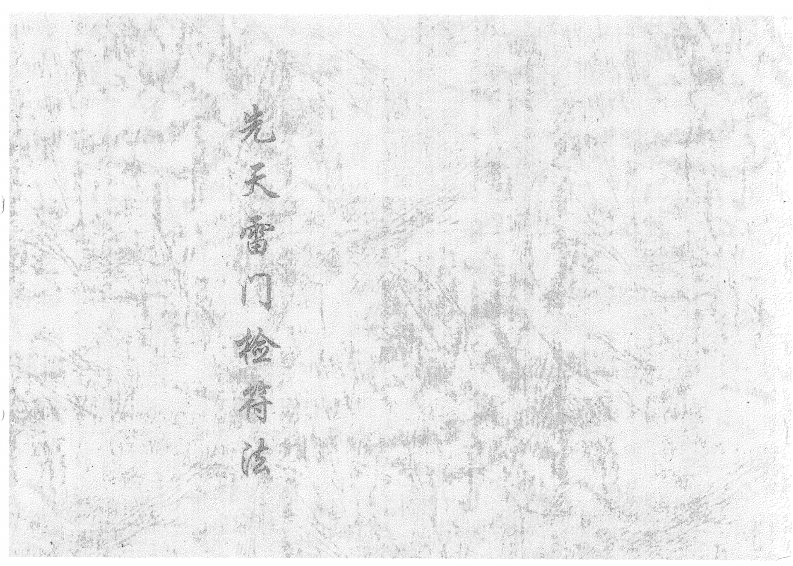 先天雷门检符法